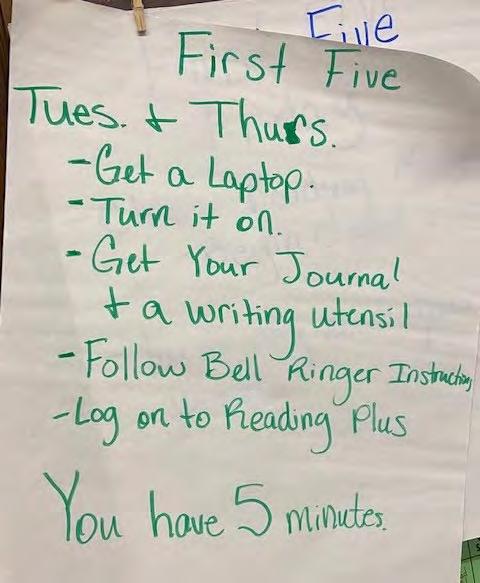 Five
First Five
Tues. + Thurs.
- Get a Laptop.
- Turn it on.
- Get Your Journal
+ a writing utensil
- Follow Bell Ringer Instructions
- Log on to Reading Plus
You have 5 minutes.